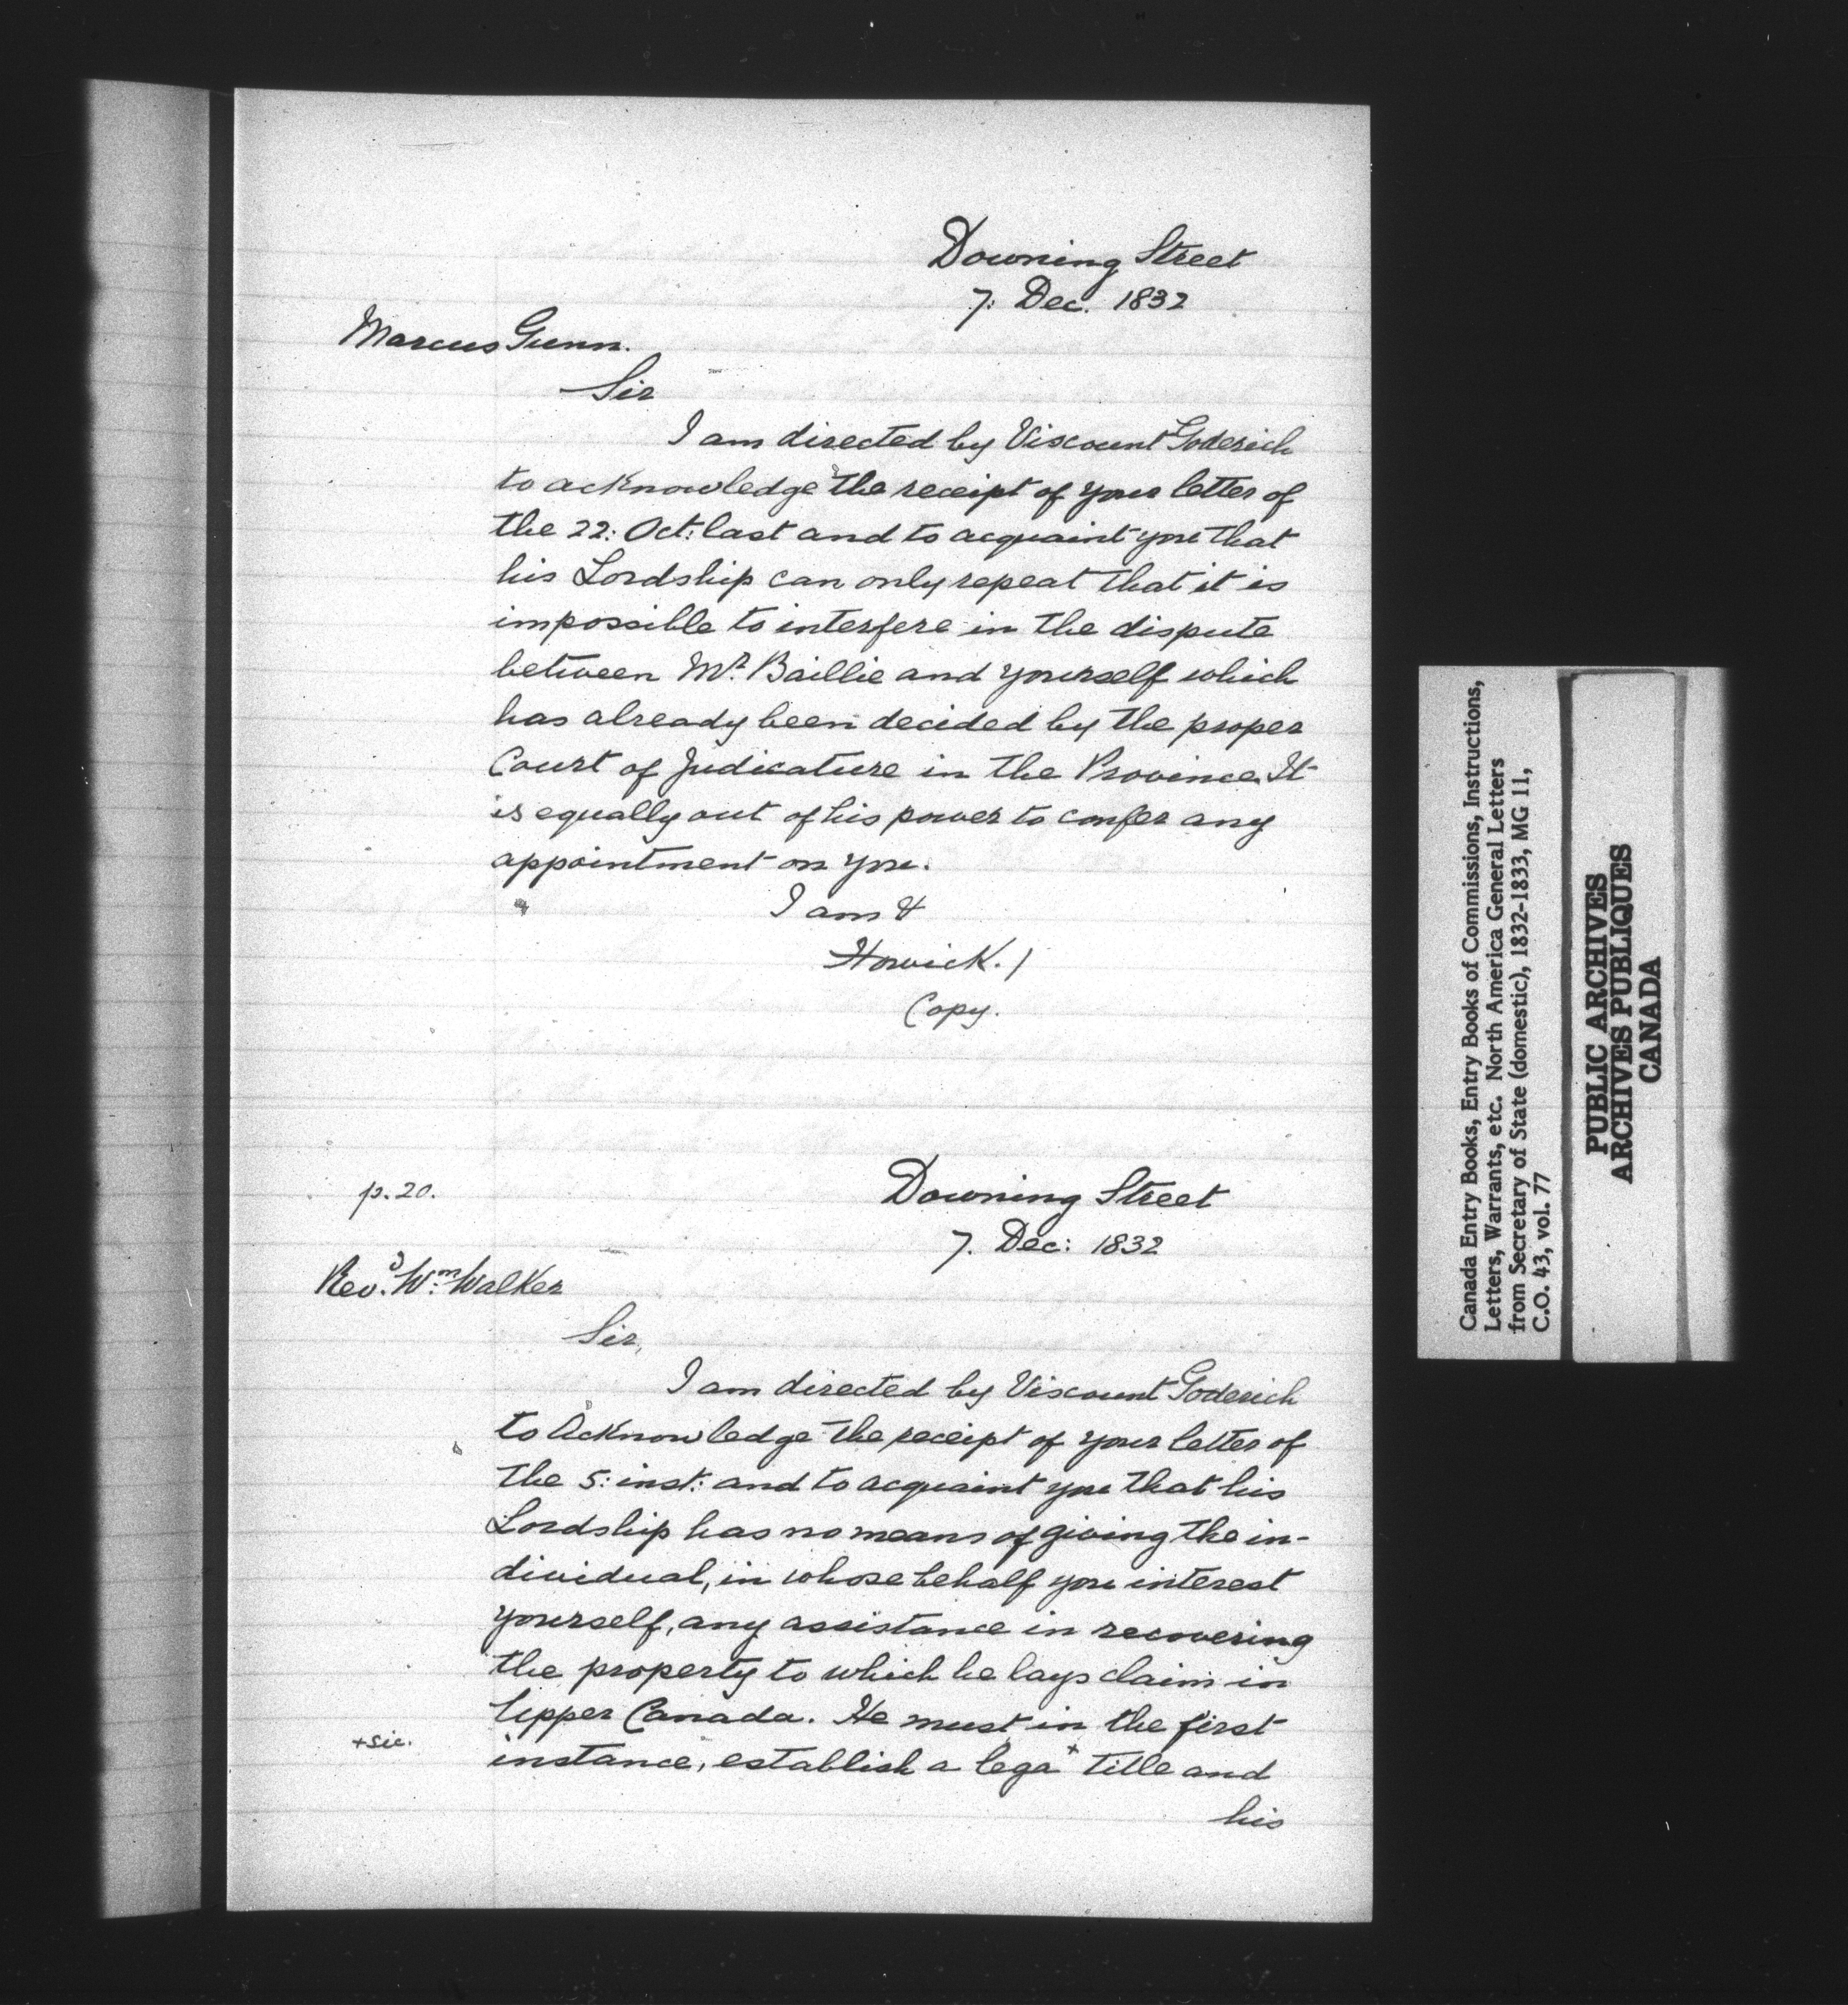 Downing Street
7: Dec. 1832
Marcus Gunn.
Sir
I am directed by Viscount Goderich
to acknowledge the receipt of your letter of
the 22: Oct: last and to acquaint you that
his Lordship can only repeat that it is
impossible to interfere in the dispute
between Mr. Baillie and yourself which
has already been decided by the proper
Court of Judicature in the Province. It
is equally out of his power to confer any
appointment on you.
I am &
Howick. /
Copy.
p. 20.
Downing Street
7. Dec: 1832
Revd. Wm. Walker
Sir,
I am directed by Viscount Goderich
to Acknowledge the receipt of your letter of
the 5: inst: and to acquaint you that his
Lordship has no means of giving the in-
dividual, in whose behalf you interest
yourself, any assistance in recovering
the property to which he lays claim in
Upper Canada. He must in the first
+ sic.
instance, establish a lega + title and
his
Canada Entry Books, Entry Books of Commissions, Instructions,
Letters, Warrants, etc. North America General Letters
from Secretary of State (domestic), 1832-1833, MG 11,
C.O. 43, vol. 77
PUBLIC ARCHIVES
ARCHIVES PUBLIQUES
CANADA